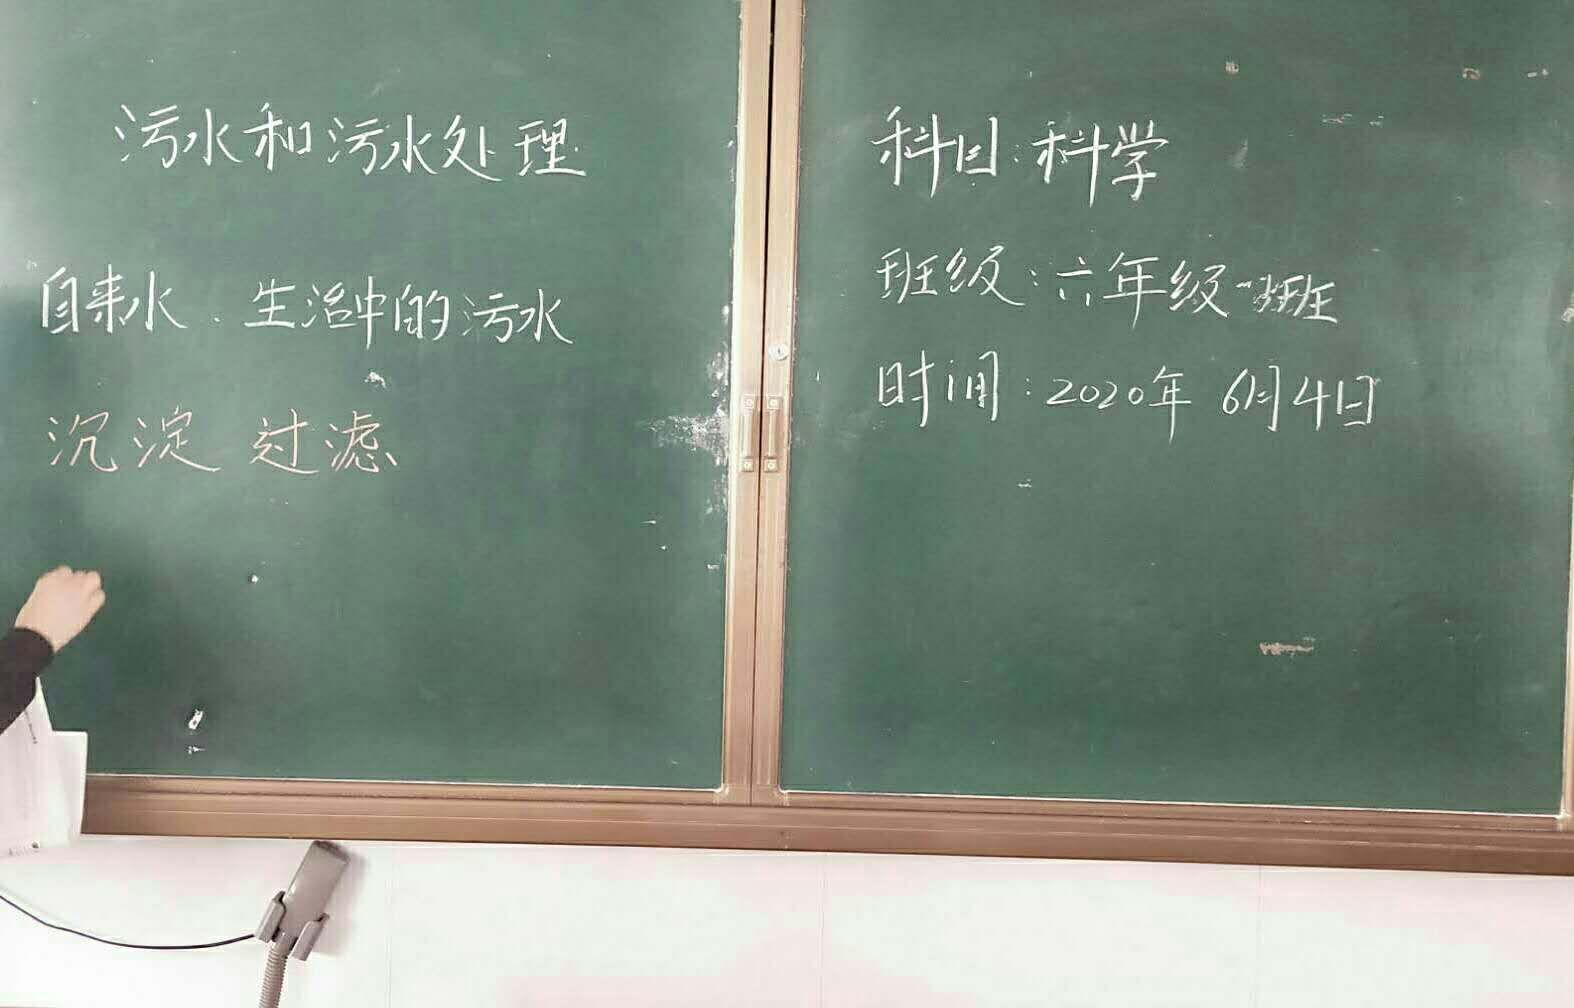 污水和污水处理
自来水.生活中的污水
沉淀 过滤
科目:科学
班级:六年级一班
时间:2020年 6月4日